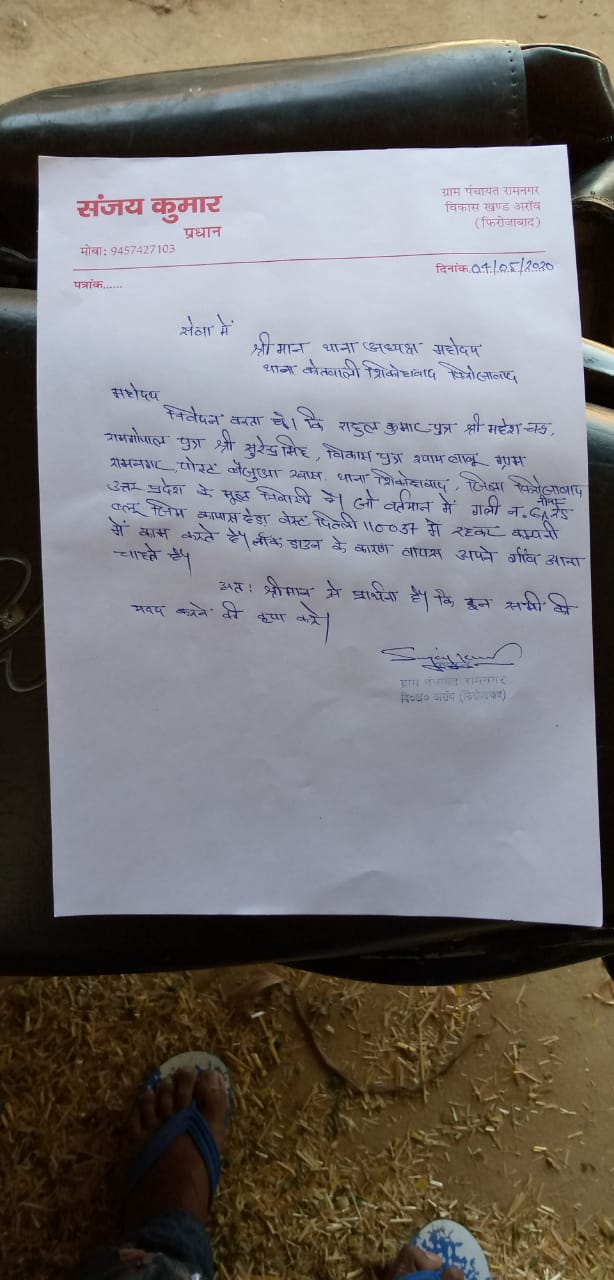 संजय कुमार
प्रधान
मोबा: 9457427103
ग्राम पंचायत रामनगर
विकास खण्ड अराँव
(फिरोजाबाद)
पत्रांक......
दिनांक 04/05/2020
सेवा में
श्री मान थाना अध्यक्ष महोदय
थाना कोतवाली शिकोहावाद फिरोजावाद
महोदय
निवेदन करता है। कि राहुल कुमार पुत्र श्री महेश चन्द्र,
रामगोपाल पुत्र श्री सुरेन्द्र सिंह, विकास पुत्र श्याम बाबू ग्राम
रामनगर, पोस्ट खास थाना शिकोहावाद, जिला फिरोजावाद
उत्तर प्रदेश के मूल निवासी है। जो वर्तमान में गली न. 6
कापास हेडा वेस्ट दिल्ली 110037 में रहकर कम्पनी
में काम करते है। लॉक डाउन के कारण वापस अपने गाँव आना
चाहते है।
अत: श्रीमान से प्रार्थना है। कि इन सभी की
मदद करने की कृपा करे।
ग्राम पंचायत रामनगर
वि०ख० अराँव (फिरोजाबाद)